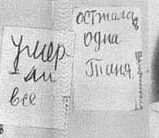 умер
ли
все
осталась
одна
Таня